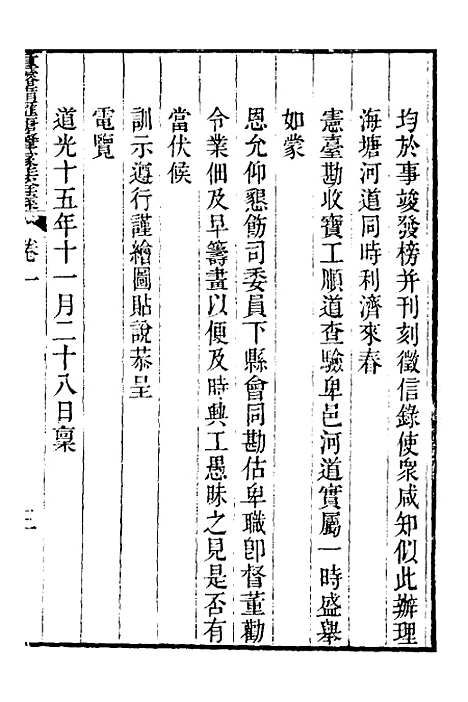 均於事竣發榜并刊刻徵信錄使眾咸知似此辦理
海塘河道同時利濟來春
憲臺勘收寶工順道查驗卑邑河道實屬一時盛舉
如蒙
恩允仰懇飭司委員下縣會同勘估卑職卽督董勸
令業佃及早籌畫以便及時興工愚昧之見是否有
當伏候
訓示遵行謹繪圖貼說恭呈
電覽
道光十五年十一月二十八日稟
卷一
三